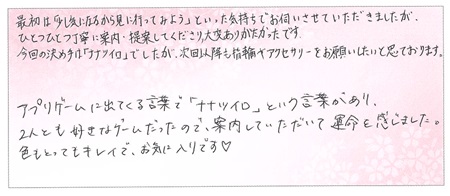 最初は「少し気になるから見に行ってみよう」といった気持ちでお伺いさせていただきましたが、
ひとつひとつ丁寧に案内・提案してくださり、大変ありがたかったです。
今回の決め手は「ナナツイロ」でしたが、次回以降も指輪やアクセサリーをお願いしたいと思ております。
アプリゲームに出てくる言葉で「ナナツイロ」という言葉があり、
2人とも好きなゲームだったので、案内していただいて運命を感じました。
色もとってもキレイで、お気に入りです♡